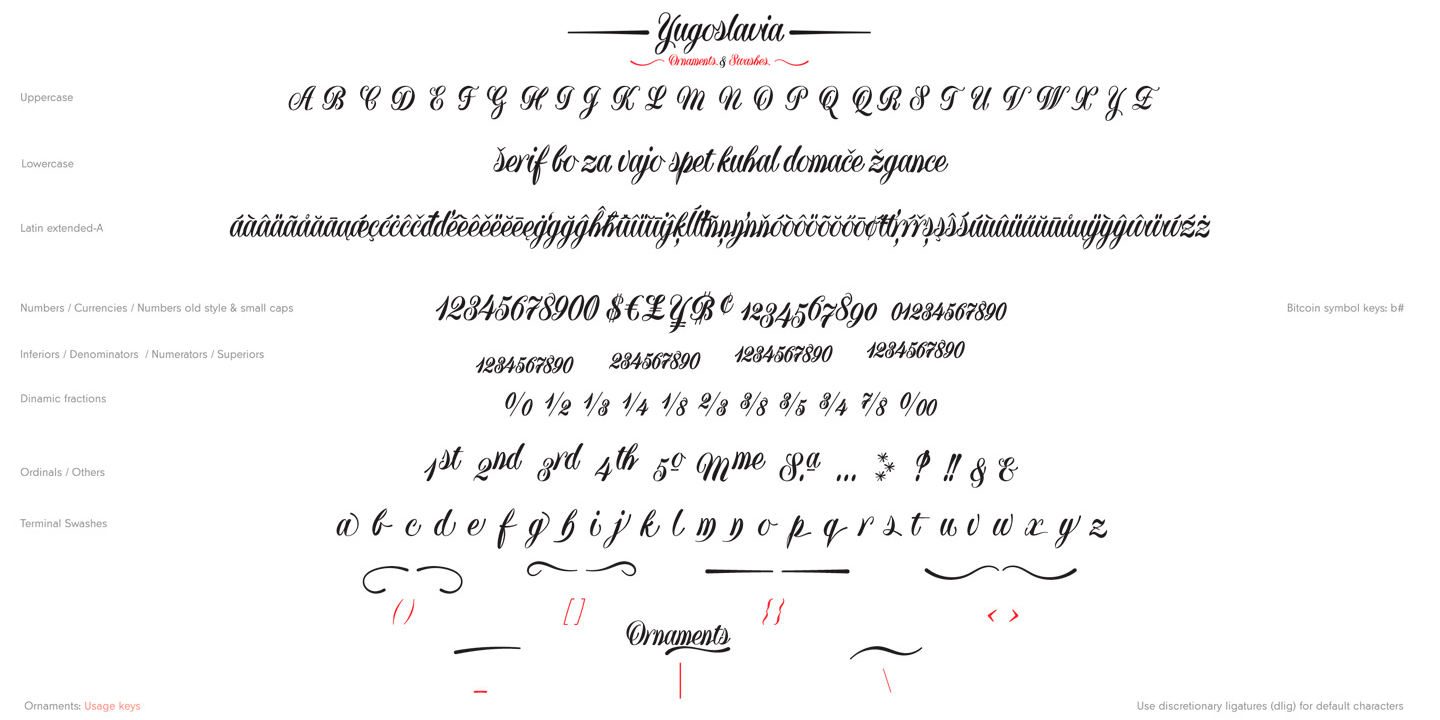 Yugoslavia
Ornaments & Swashes
Uppercase A B C D E F G H I J K L M N O P Q Q R S T U V W X Y Z
Lowercase šerif bo za vajo spet kuhal domače žgance
Latin extended-A
Numbers / Currencies / Numbers old style & small caps 12345678900 $€£¥₿¢ 1234567890 01234567890 Bitcoin symbol keys: b#
Inferiors / Denominators / Numerators / Superiors 1234567890 234567890 1234567890 1234567890
Dinamic fractions 0/0 1/2 1/3 1/4 1/8 2/3 3/8 3/5 3/4 7/8 0/00
Ordinals / Others 1st 2nd 3rd 4th 5º Mme S.ª ... ⁂ ‽ !! & &
Terminal Swashes a b c d e f g h i j k l m n o p q r s t u v w x y z
( ) [ ] { } < >
Ornaments
_ | \
Ornaments: Usage keys Use discretionary ligatures (dlig) for default characters